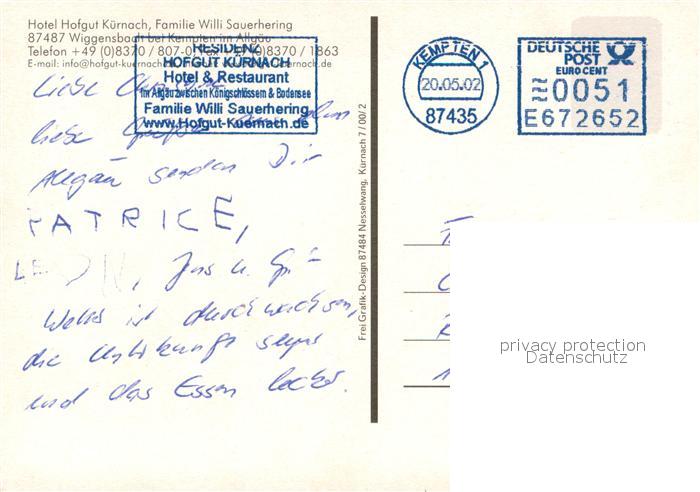 Hotel Hofgut Kürnach, Familie Willi Sauerhering
87487 Wiggensbach bei Kempten im Allgäu
Telefon +49 (0)8370 / 807-0, Fax +49 (0)8370 / 1863
E-mail: info@hofgut-kuernach.de
RESIDENZ
HOFGUT KÜRNACH
Hotel & Restaurant
Im Allgäu zwischen Königschlössern & Bodensee
Familie Willi Sauerhering
www.Hofgut-Kuernach.de
Liebe
liebe Grüße aus dem
Allgäu senden Dir
PATRICE,
LEON, Jens u.
Wetter ist durchwachsen,
die Unterkunft super
und das Essen lecker.
Frei Grafik-Design 87484 Nesselwang, Kürnach 7/00/2
KEMPTEN 1
20.05.02
87435
DEUTSCHE
POST
EURO CENT
0051
E672652
privacy protection
Datenschutz